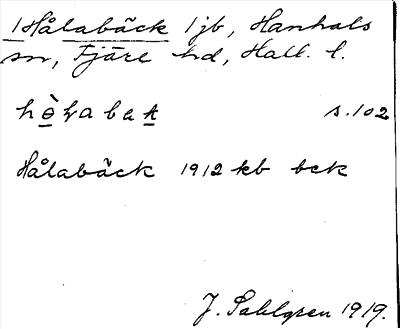 1 Hålabäck 1 jb, Hanhals
sn, Fjäre hd, Hall. l.
s. 102
Hålabäck 1912 kb bck
J. Sahlgren 1919.